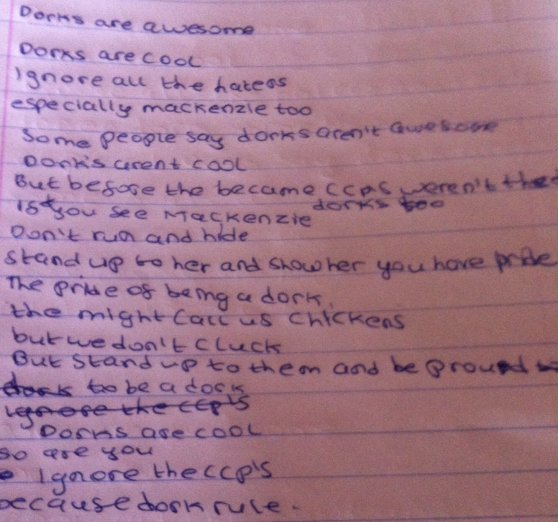 Dorks are awesome
Dorks are cool
Ignore all the haters
especially mackenzie too
Some people say dorks aren't awesome
Dork's arent cool
But before the became CCPS weren't the
dorks too
If you see Mackenzie
Don't run and hide
Stand up to her and show her you have pride
The pride of being a dork.
the might call us chickens
but we don't cluck
But stand up to them and be proud
dork to be a dork
ignore the CCP'S
Dorks are cool
so are you
Ignore the CCP's
because dork rule.